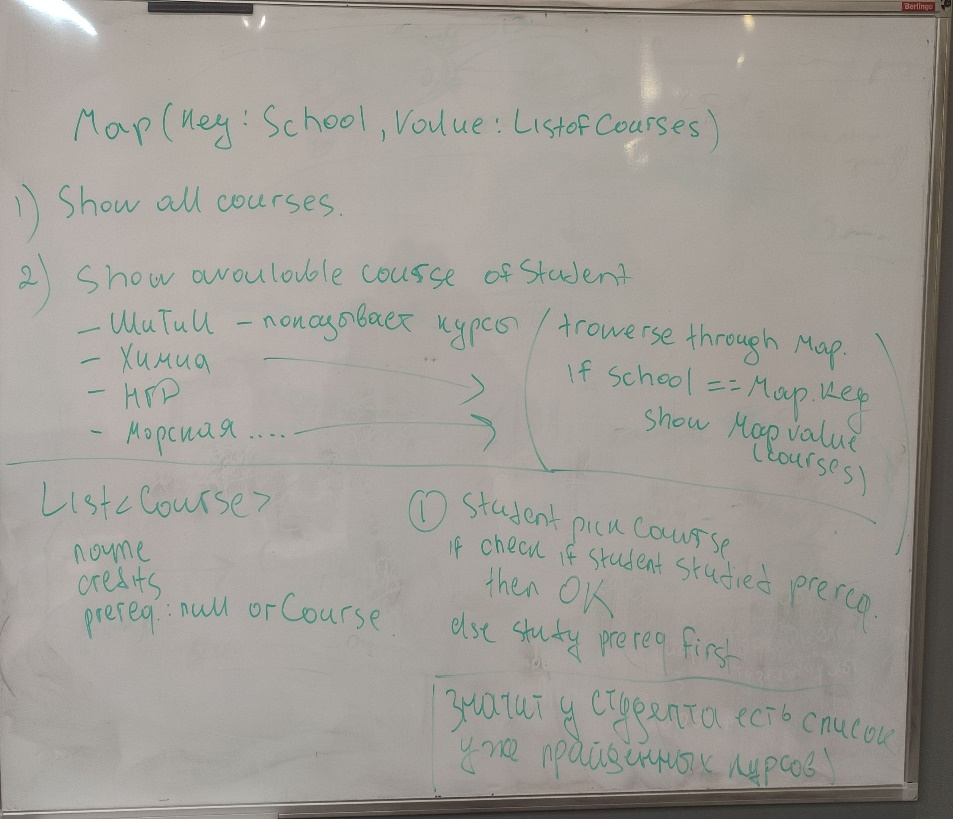 Berlingo
Map (Key: School, Value: List of Courses)
1) Show all courses.
2) Show available course of Student
- ШИТиИ - показывает курсы
- Химия
- НГД
- Морская ....
(traverse through Map.
if school == Map.Key
show Map value
(courses)
)
List<Course>
name
credits
prereq.: null or Course.
① Student pick Course
if check if student studied prereq.
then OK
else study prereq first
Значит у студента есть список
уже пройденных курсов)